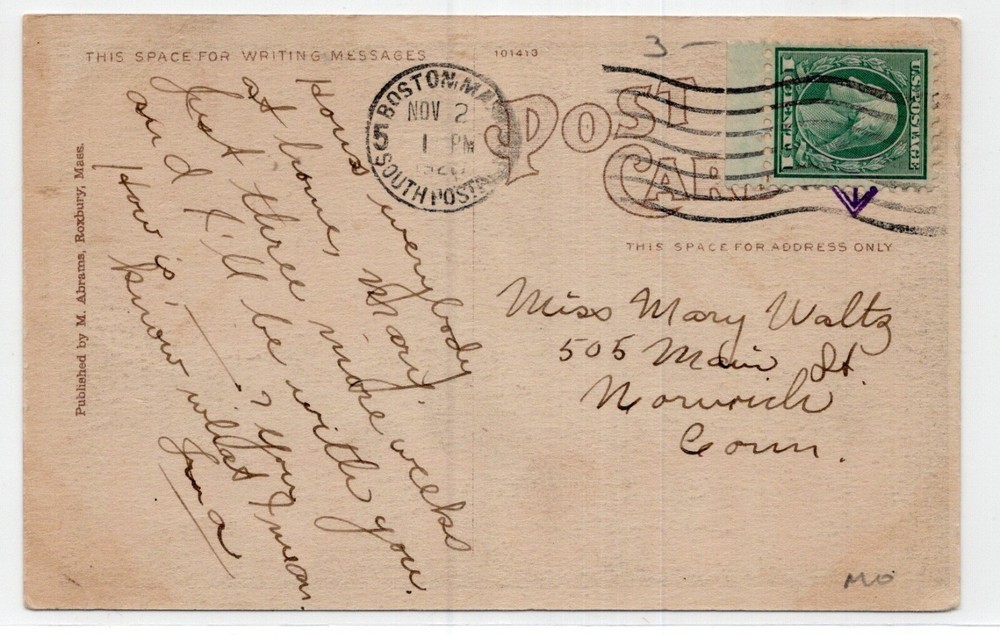 THIS SPACE FOR WRITING MESSAGES
101413
3 —
BOSTON, MA
NOV 2
1 PM
5
SOUTH POST
POST
CARD
U.S. POSTAGE
THIS SPACE FOR ADDRESS ONLY
Published by M. Abrams, Roxbury, Mass.
Hows everybody
at home, Mary.
Just three more weeks
and I'll be with you.
How is — ? You
know what I mean.
Miss Mary Waltz
505 Main St.
Norwich
Conn.
MO